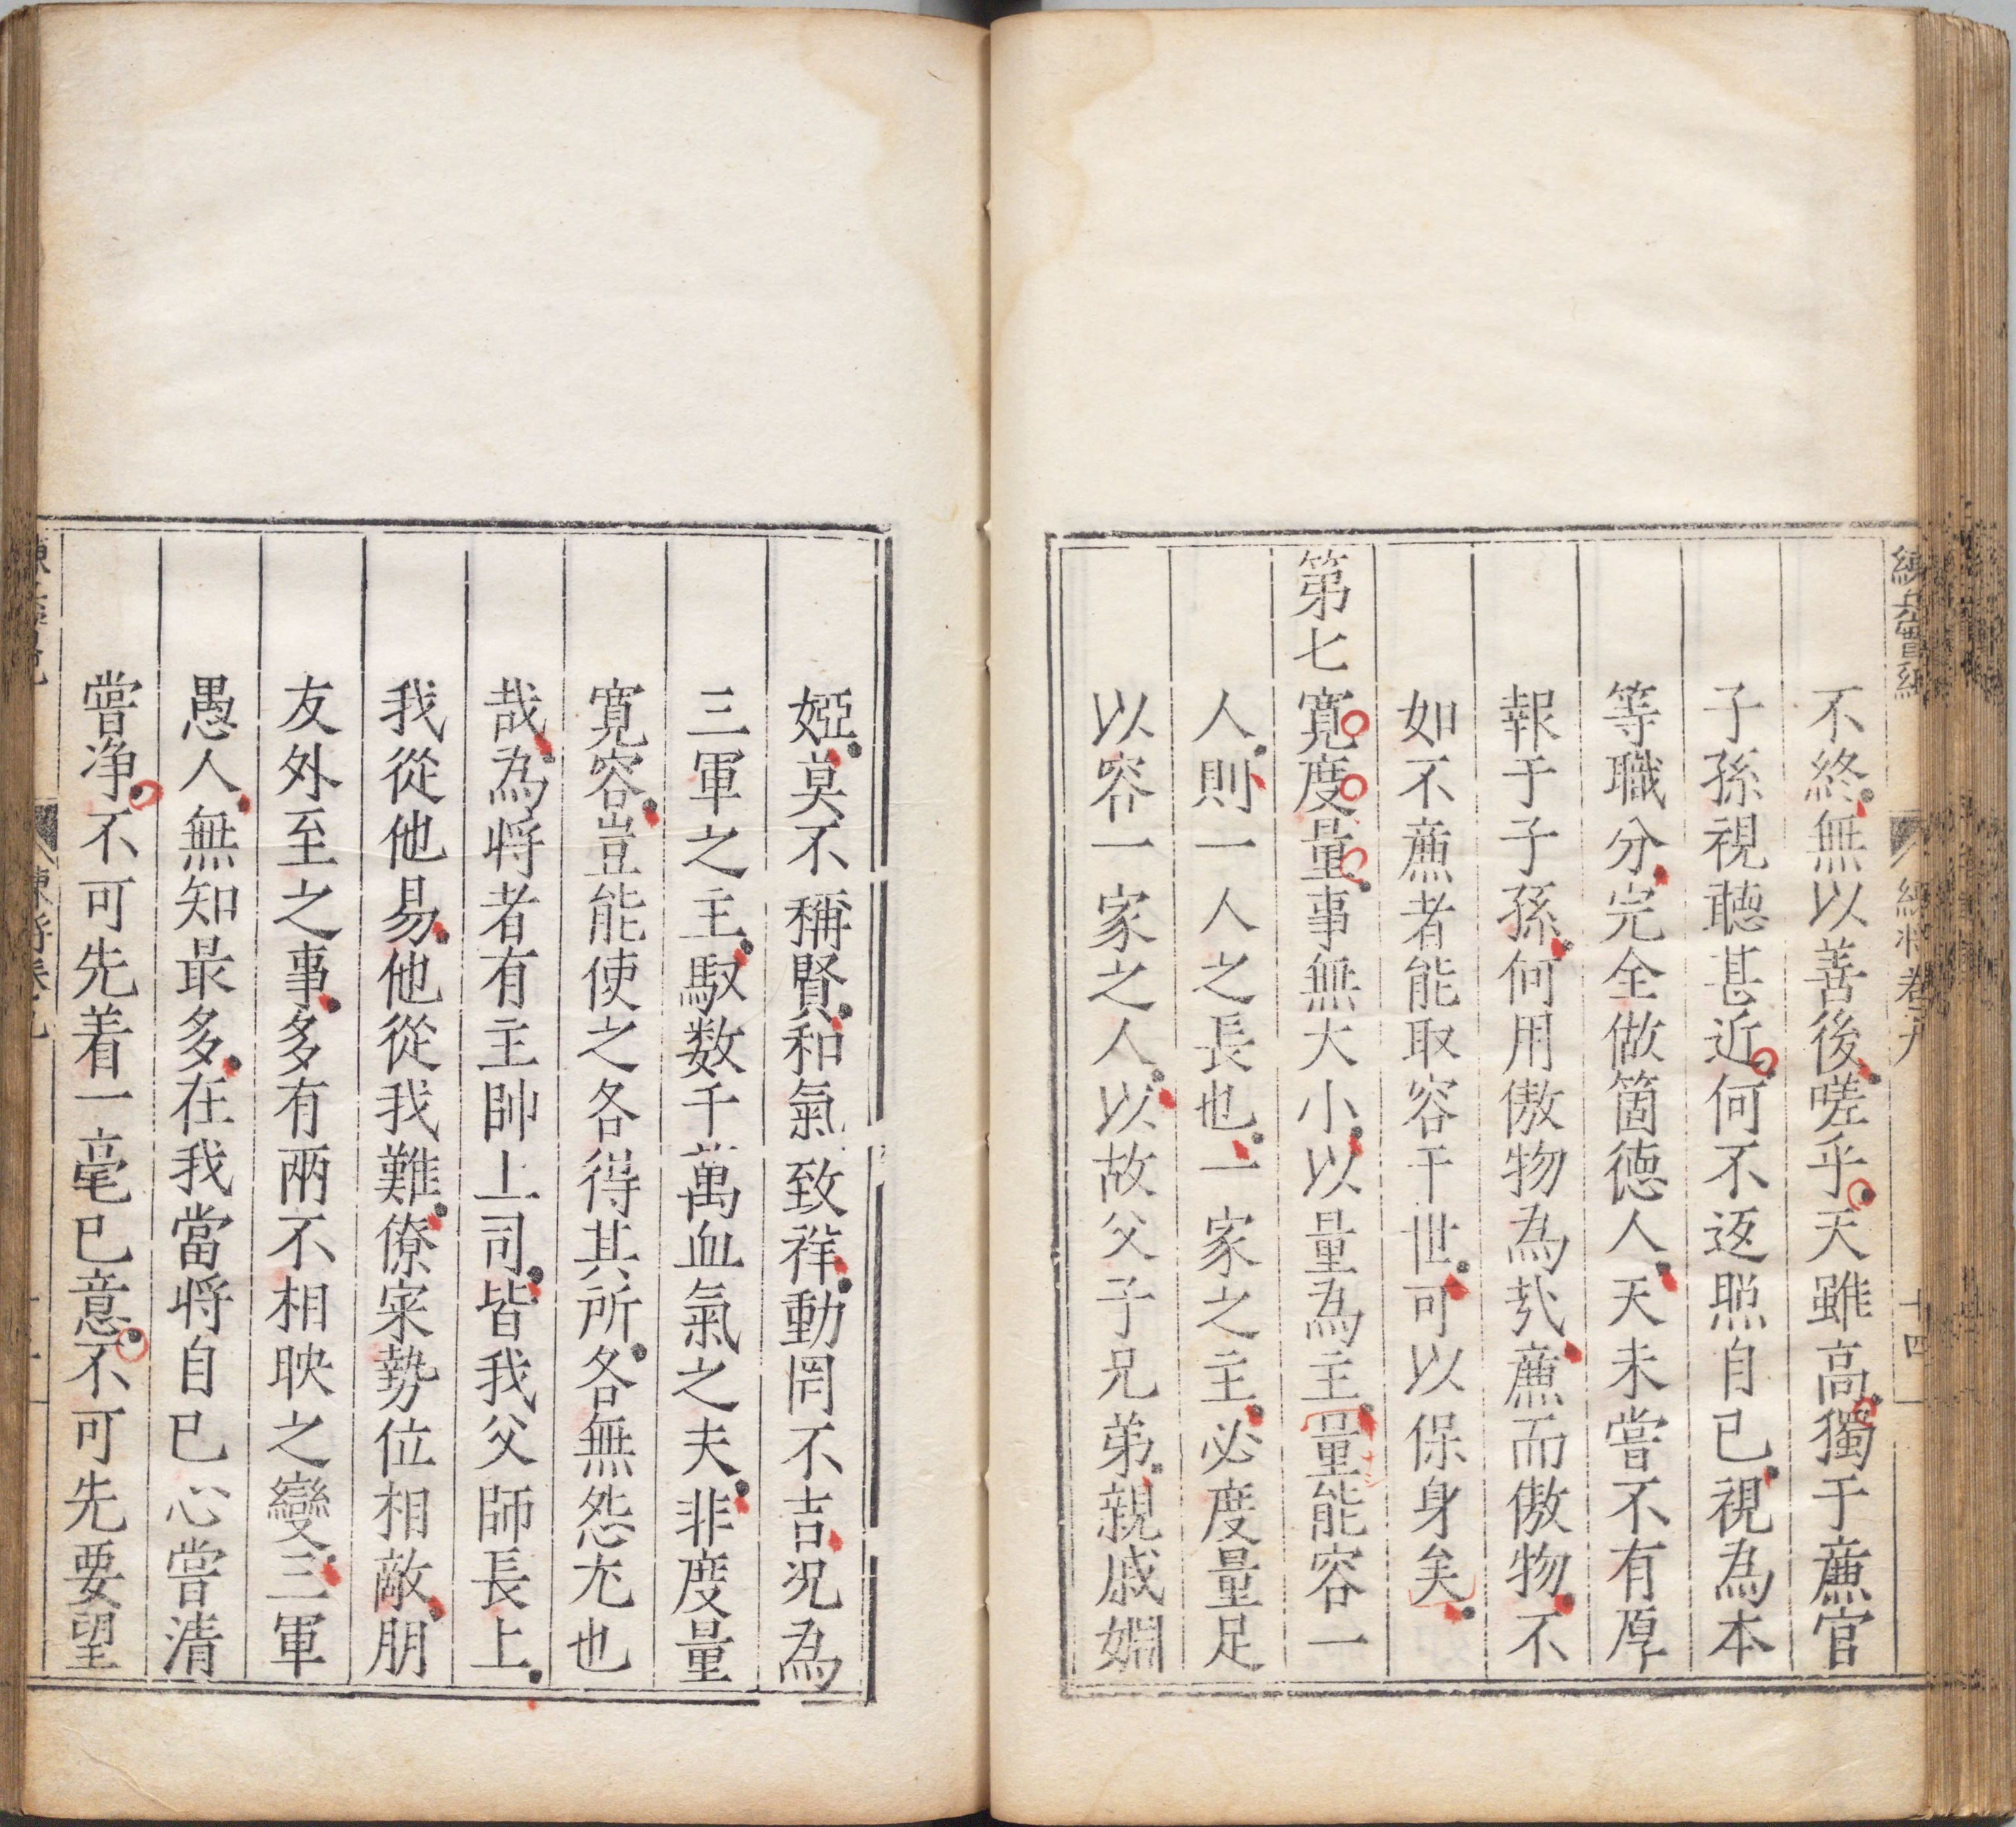 練兵實紀
練將卷九
十四
不終無以善後嗟乎天雖高獨于㢘官
子孫視聽甚近何不返照自己視為本
等職分完全做箇德人天未嘗不有厚
報于子孫何用傲物為㢤㢘而傲物不
如不㢘者能取容于世可以保身矣
第七寬度量事無大小以量為主量能容一
人則一人之長也一家之主必度量足
以容一家之人以故父子兄弟親戚婣
婭莫不稱賢和氣致祥動罔不吉況為
三軍之主馭数千萬血氣之夫非度量
寬容豈能使之各得其所各無怨尤也
哉為將者有主帥上司皆我父師長上
我從他易他從我難僚寀勢位相敵朋
友外至之事多有兩不相映之變三軍
愚人無知最多在我當將自己心嘗清
嘗净不可先着一毫已意不可先要望